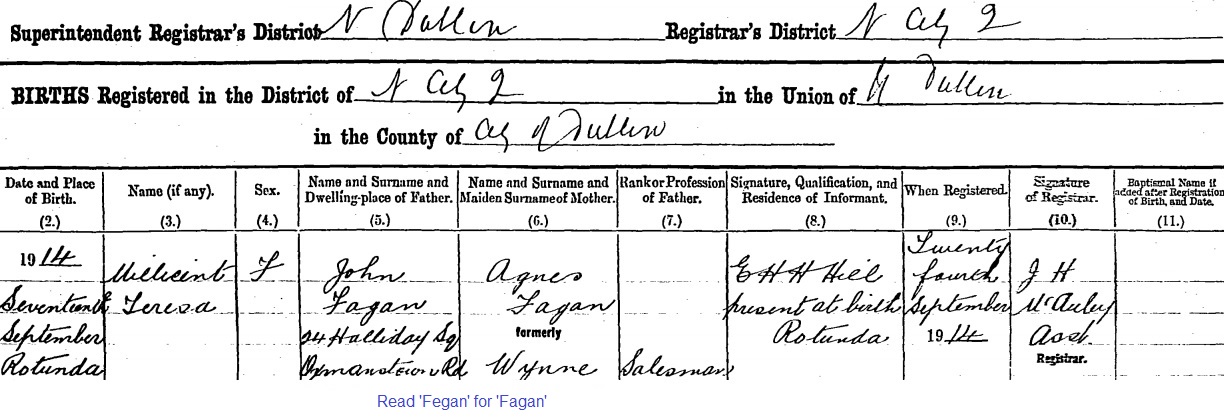 Superintendent Registrar's District N Dublin Registrar's District N City 2
BIRTHS Registered in the District of N City 2 in the Union of N Dublin
in the County of City of Dublin
Date and Place of Birth. (2.) Name (if any). (3.) Sex. (4.) Name and Surname and Dwelling-place of Father. (5.) Name and Surname and Maiden Surname of Mother. (6.) Rank or Profession of Father. (7.) Signature, Qualification, and Residence of Informant. (8.) When Registered. (9.) Signature of Registrar. (10.) Baptismal Name if added after Registration of Birth, and Date. (11.)
Twenty
1914 Millicent F John Agnes E H H Hill fourth J H
Seventeenth Teresa Fagan Fagan present at birth September McAuley
September 24 Halliday Sq formerly Rotunda 1914 Asst
Registrar.
Rotunda Oxmanstown Rd Wynne Salesman
Read 'Fegan' for 'Fagan'